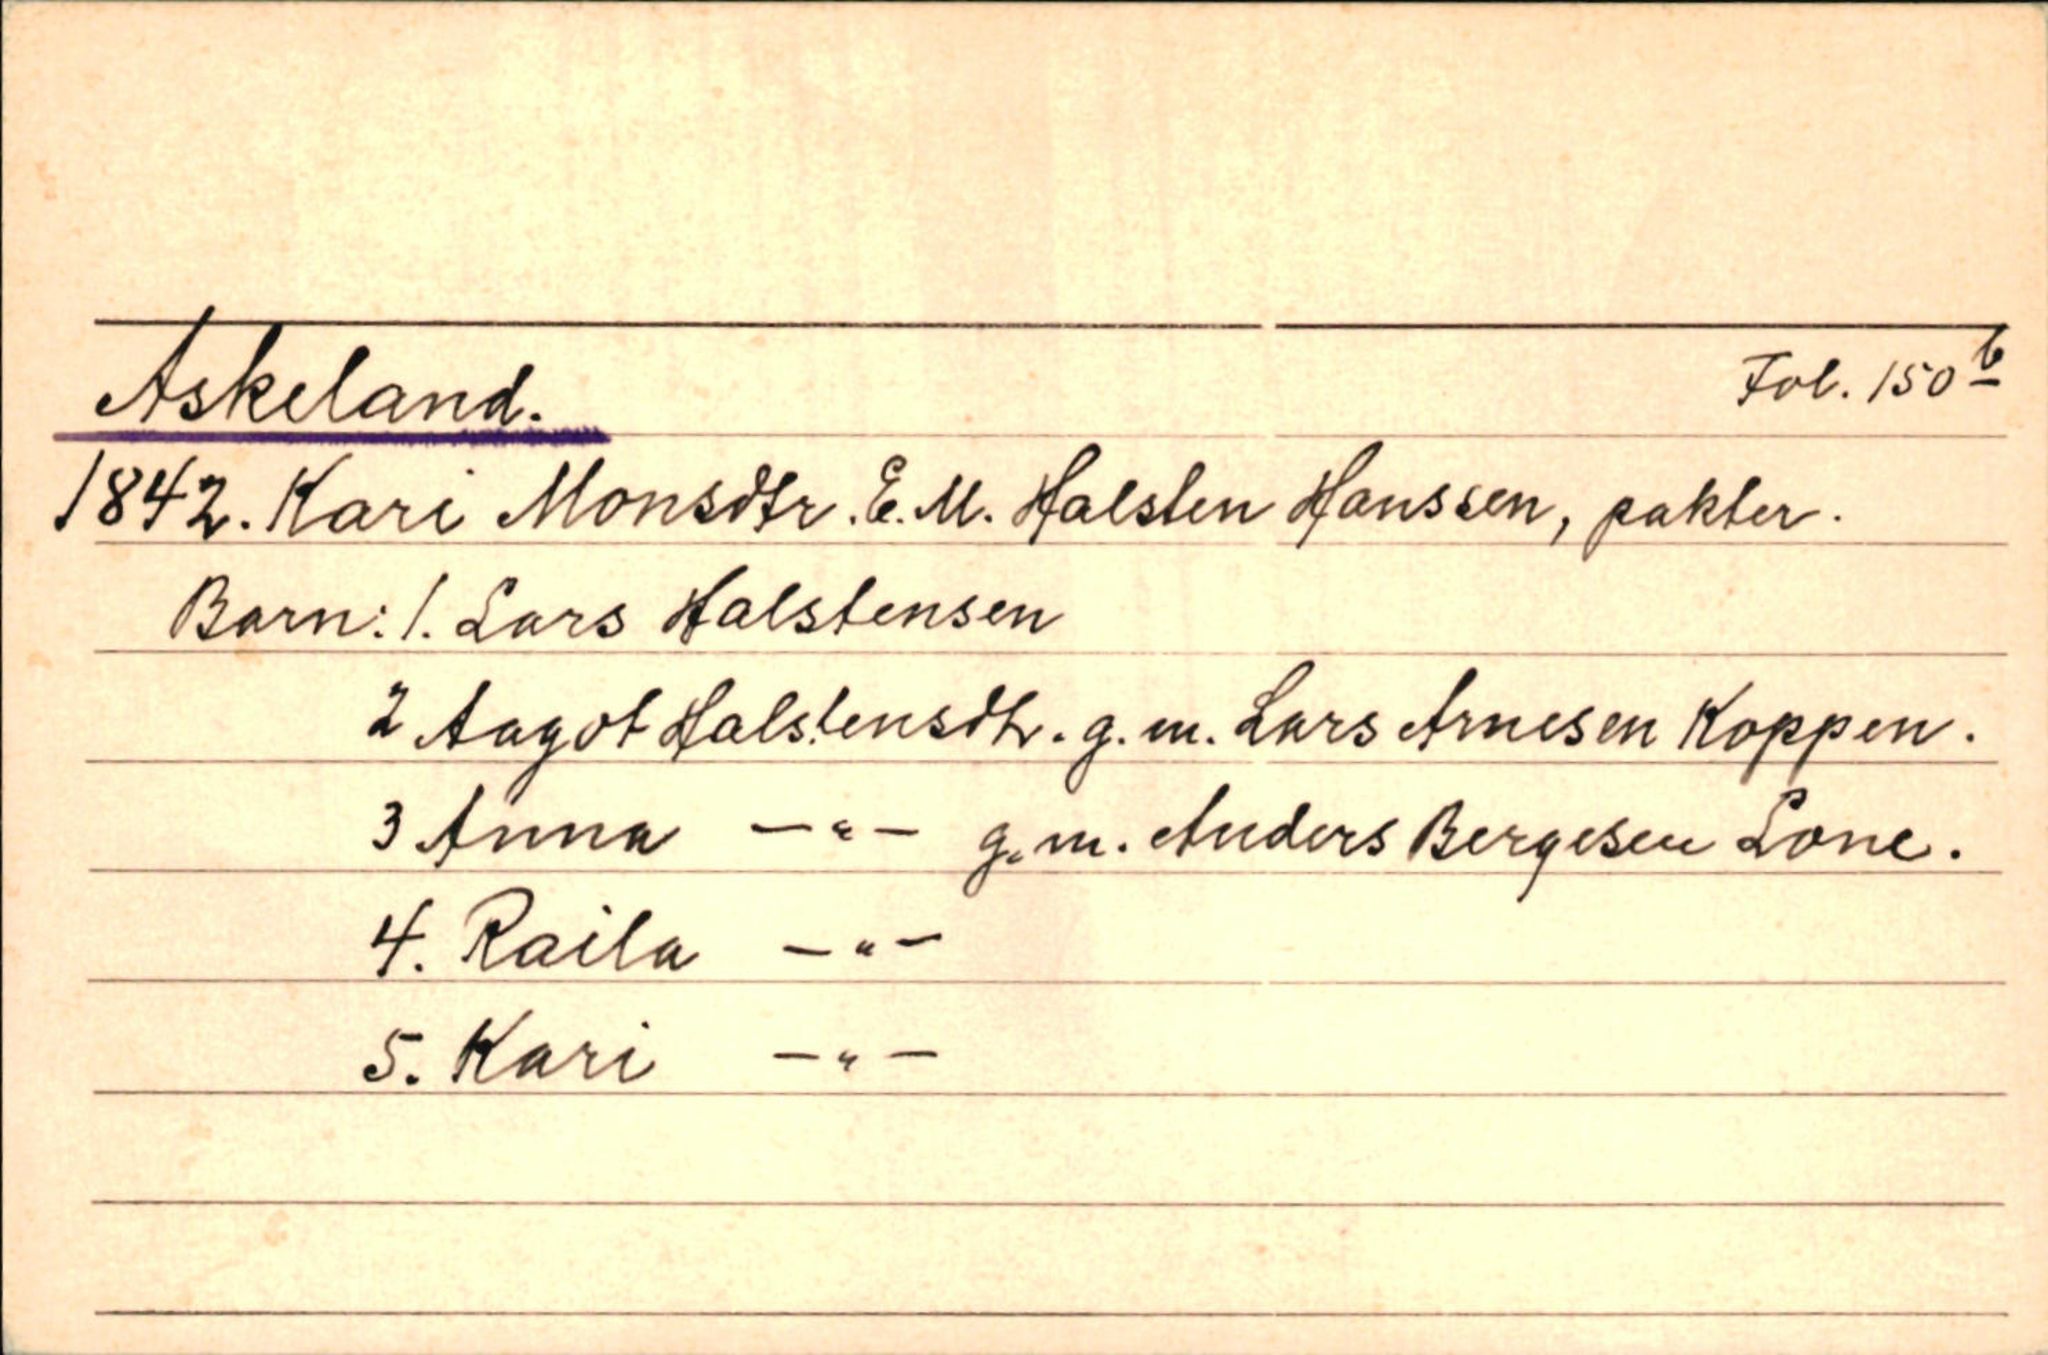 Askeland. Fol. 150 b
1842. Kari Monsdtr. E. M. Halsten Hanssen, pakter.
Barn: 1. Lars Halstensen
2 Aagot Halstensdtr. g. m. Lars Arnesen Koppen.
3 Anna —"— g. m. Anders Bergesen Lone.
4. Raila —"—
5. Kari —"—